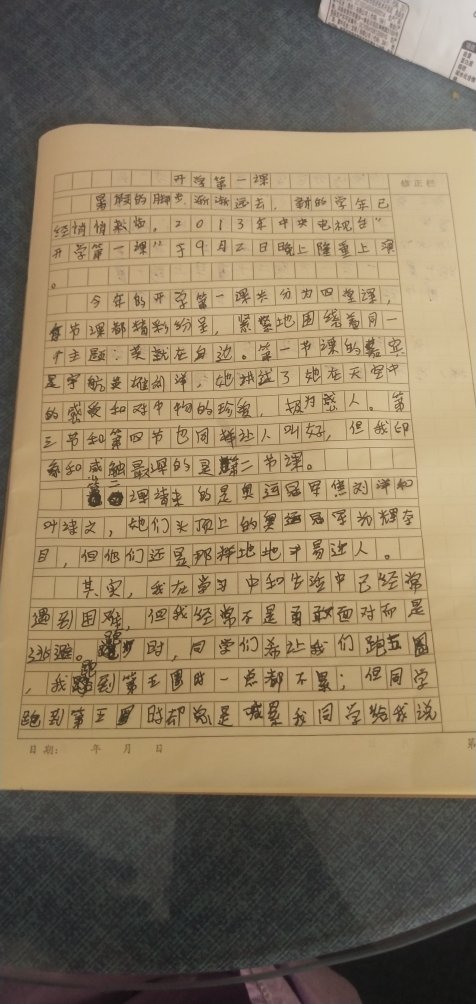 开学第一课
修正栏
暑假的脚步渐渐远去，新的学年已
经悄悄来临，2013年中央电视台“
开学第一课”于9月2日晚上隆重上演
。
今年的开学第一课共分为四堂课，
每节课都精彩纷呈，紧紧地围绕着同一
个主题：英雄在身边。第一节课的嘉宾
是宇航英雄刘洋，她讲述了她在天空中
的感受和对中物的珍爱，极为感人。第
三节和第四节也同样让人叫好，但我印
象和感触最深的是第二节课。
第二课请来的是奥运冠军焦刘洋和
叶诗文，她们头顶上的奥运冠军为辉夺
目，但他们还是那样地地平易近人。
其实，我在学习中和生活中已经常
遇到困难，但我经常不是勇敢面对而是
逃避。跑步时，同学们希让我们跑五圈
，我跑到第五圈时一点都不累；但同学
跑到第五圈时却总是喊累我同学给我说
日期： 年 月 日
第